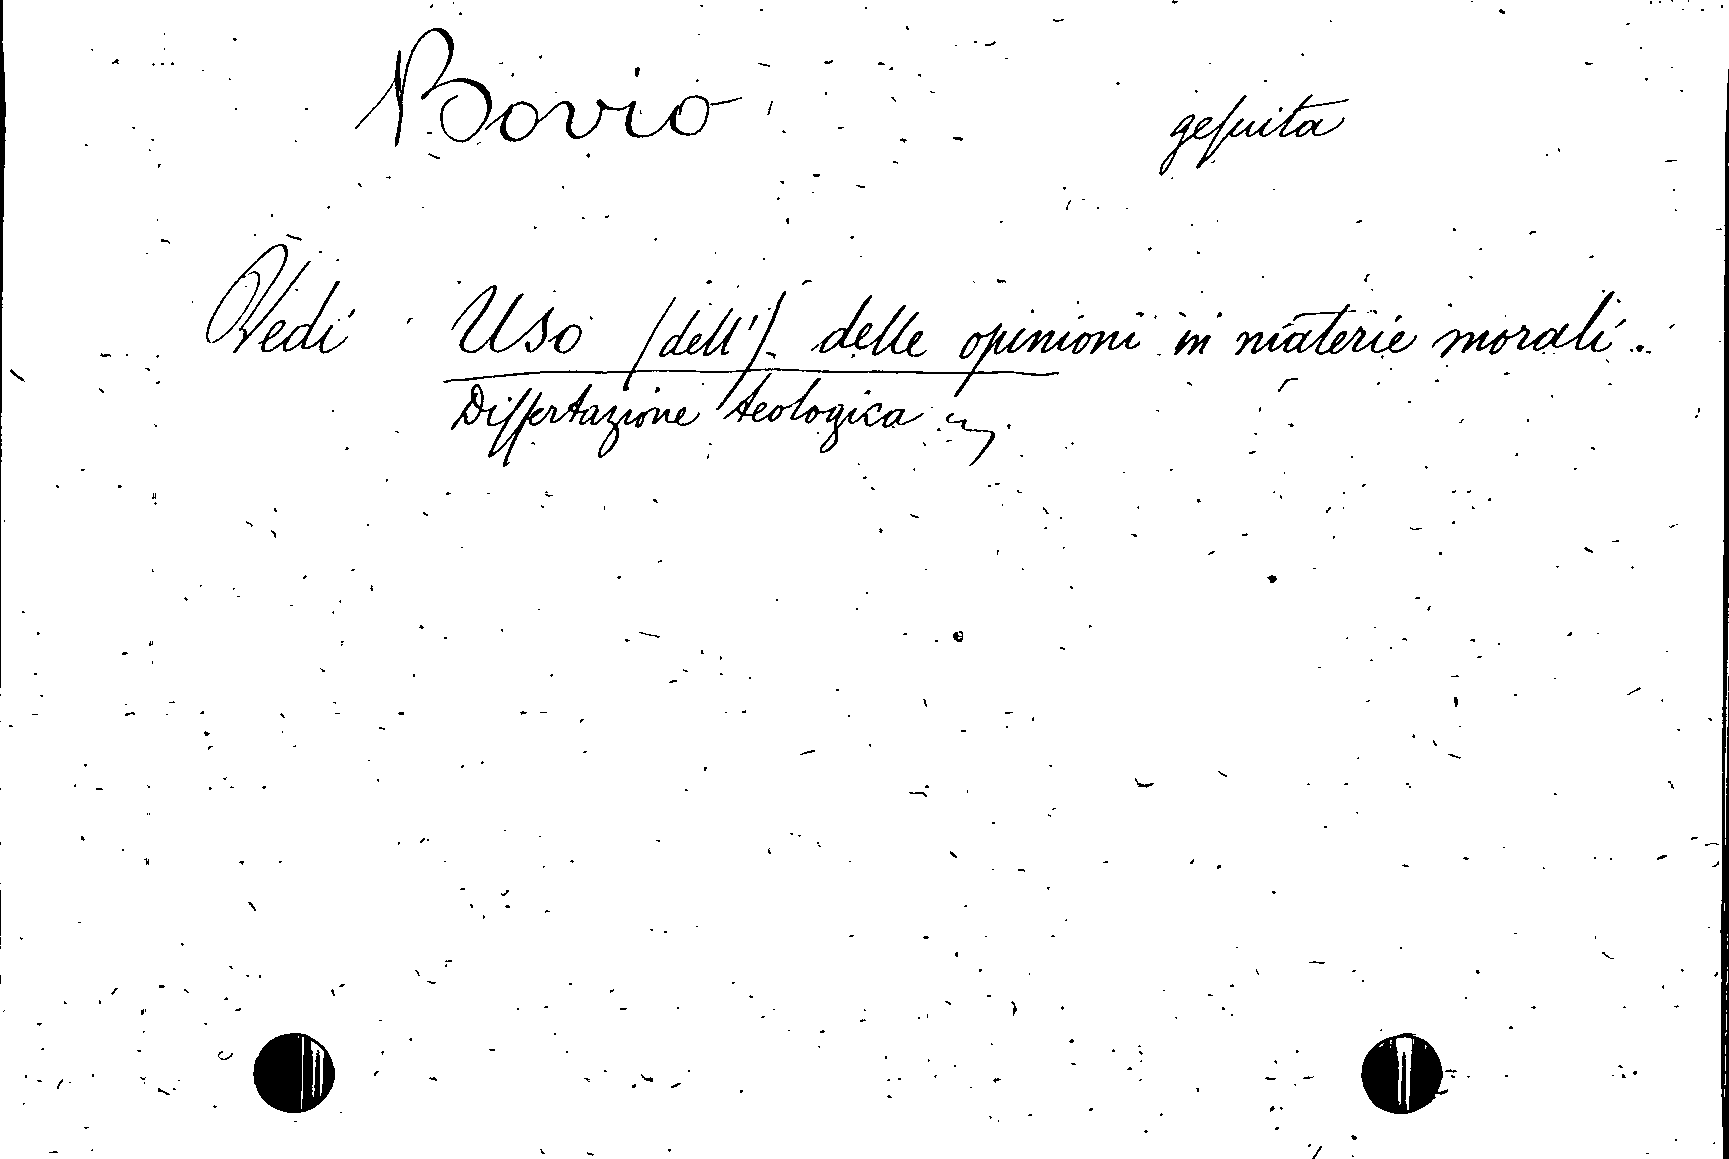 Bovio gesuita
Vedi Uso (dell') delle opinioni in materie morali.
Dissertazione teologica